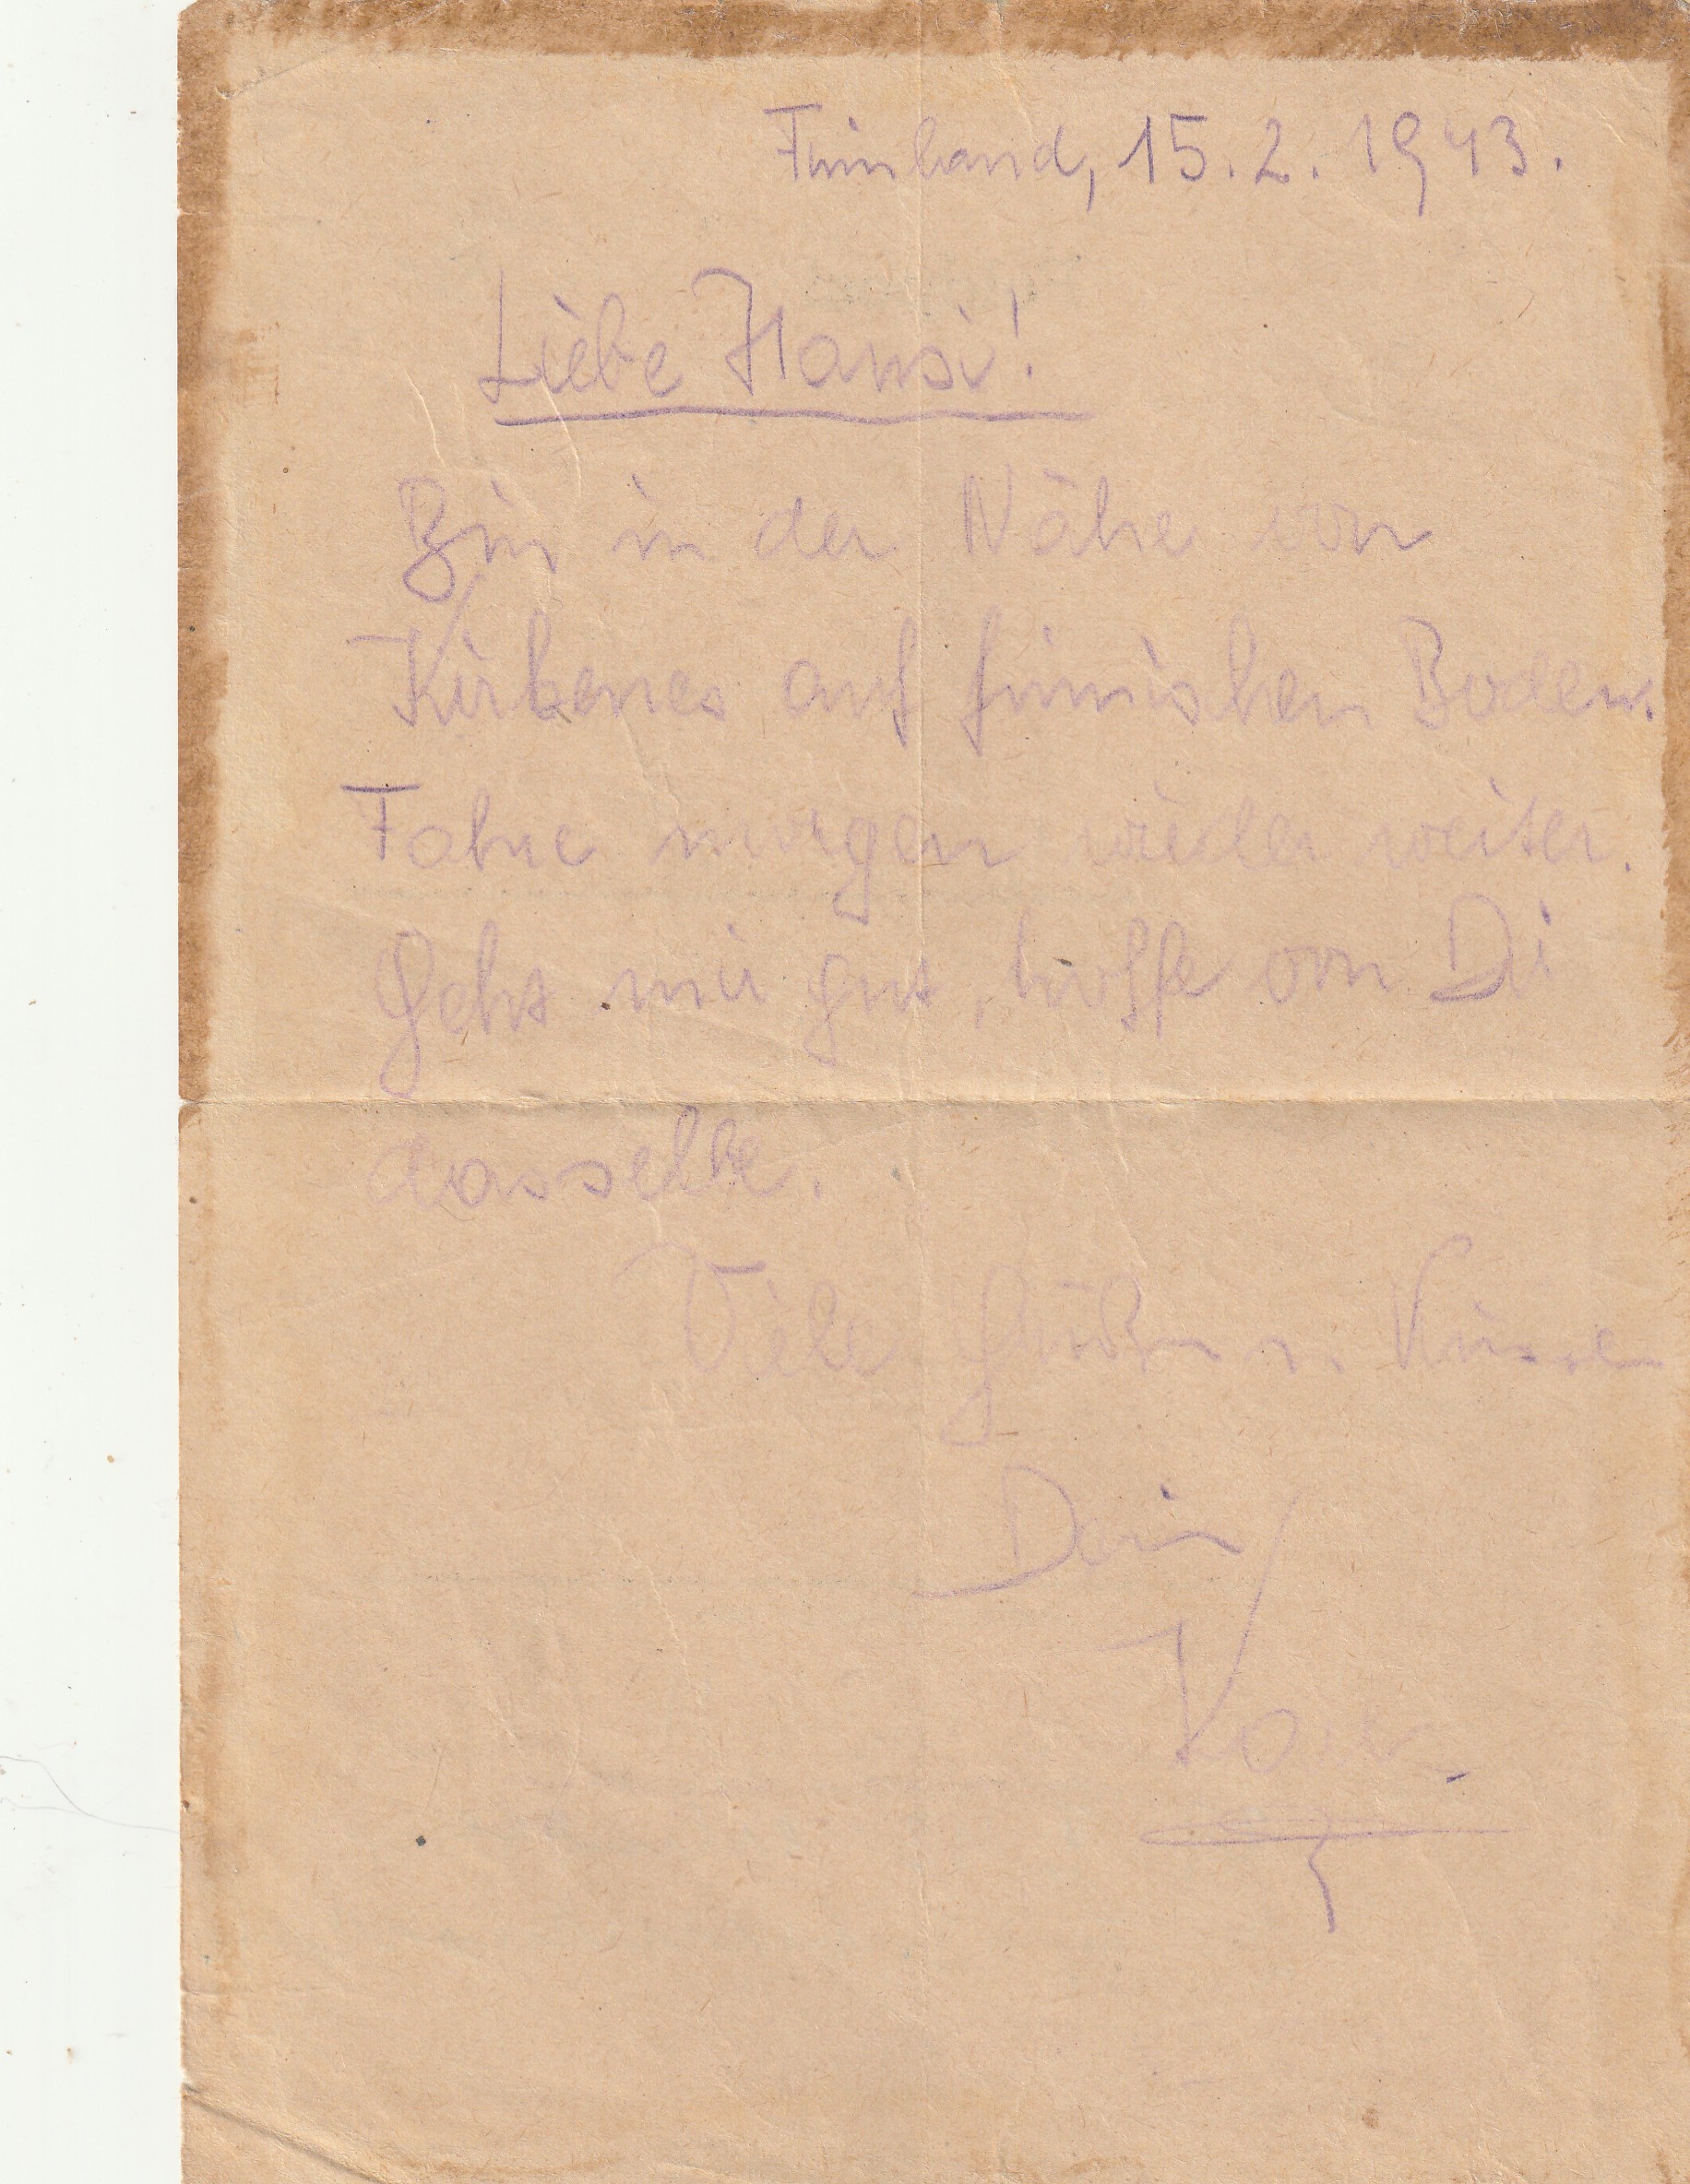 Finnland, 15.2.1943.
Liebe Hansi!
Bin in der Nähe von
Kirkenes auf finnischen Boden.
Fahre morgen wieder weiter.
Geht mir gut, hoffe von Dir
dasselbe.
Viele Grüße u. Küsse
Dein